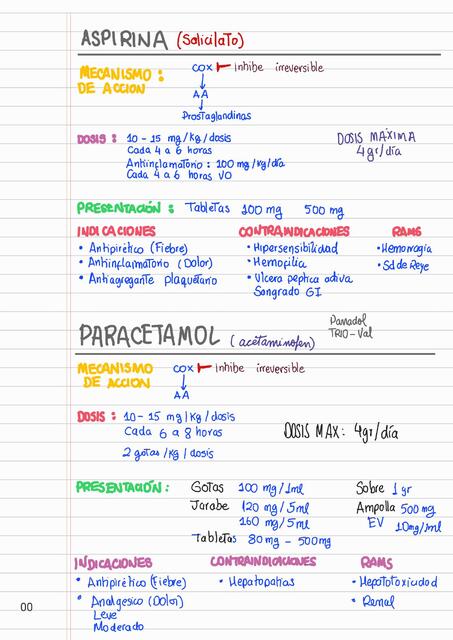 ASPIRINA (Salicilato)
MECANISMO : DE ACCION
COX Inhibe irreversible
AA
Prostaglandinas
DOSIS : 10 - 15 mg/kg/dosis
Cada 4 a 6 horas
Antiinflamatorio : 100 mg/kg/día
Cada 4 a 6 horas VO
DOSIS MAXIMA
4 gr/día
PRESENTACIÓN : Tabletas 100 mg 500 mg
INDICACIONES
• Antipirético (Fiebre)
• Antiinflamatorio (Dolor)
• Antiagregante plaquetario
CONTRAINDICACIONES
• Hipersensibilidad
• Hemofilia
• Ulcera péptica activa
Sangrado GI
RAMS
• Hemorragia
• Sd de Reye
PARACETAMOL (acetaminofen)
Panadol
TRIO-Val
MECANISMO DE ACCION
COX Inhibe irreversible
AA
DOSIS : 10 - 15 mg/kg/dosis
Cada 6 a 8 horas
2 gotas/kg/dosis
DOSIS MAX: 4gr/día
PRESENTACIÓN : Gotas 100 mg/1ml
Jarabe 120 mg/5ml
160 mg/5ml
Tabletas 80mg - 500mg
Sobre 1 gr
Ampolla 500 mg
EV 10mg/ml
INDICACIONES
• Antipirético (Fiebre)
• Analgesico (Dolor)
Leve
Moderado
CONTRAINDICACIONES
• Hepatopatias
RAMS
• Hepatotoxicidad
• Renal
00